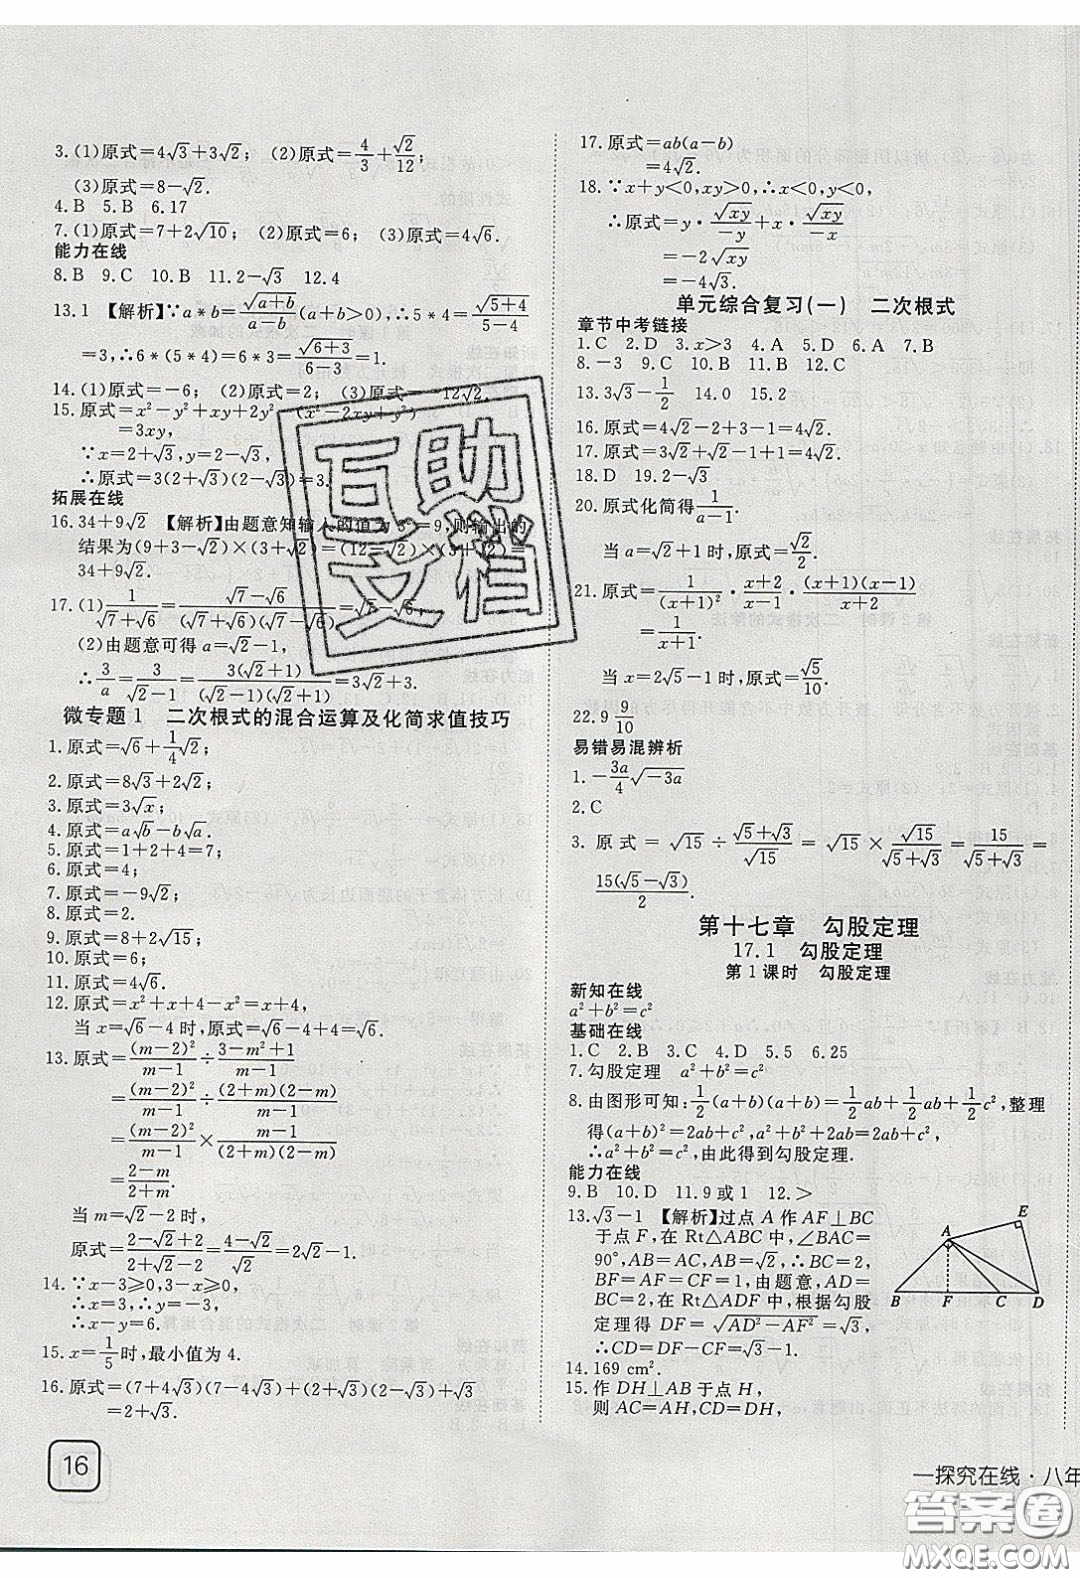 3.(1)原式=4√3+3√2; (2)原式=4/3+√2/12;
(3)原式=8-√2.
4.B 5.B 6.17
7.(1)原式=7+2√10; (2)原式=6; (3)原式=4√6.
能力在线
8.B 9.C 10.B 11.2-√3 12.4
13.1 【解析】∵a*b=√(a+b)/(a-b)(a+b>0),∴5*4=√(5+4)/(5-4)
=3,∴6*(5*4)=6*3=√(6+3)/(6-3)=1.
14.(1)原式=-6; (2)原式=2; (3)原式=-12√2.
15.原式=x²-y²+xy+2y²-(x²-2xy+y²)
=3xy,
∵x=2+√3,y=2-√3,
∴原式=3(2+√3)(2-√3)=3.
拓展在线
16.34+9√2 【解析】由题意知输入的值为3²=9,则输出的
结果为(9+3-√2)×(3+√2)=(12-√2)×(3+√2)=
34+9√2.
17.(1)1/(√7+√6)=(√7-√6)/((√7+√6)(√7-√6))=√7-√6;
(2)由题意可得a=√2-1,
∴3/a=3/(√2-1)=3(√2+1)/((√2-1)(√2+1))=3√2+3.
微专题1 二次根式的混合运算及化简求值技巧
1.原式=√6+1/4√2;
2.原式=8√3+2√2;
3.原式=3√x;
4.原式=a√b-b√a.
5.原式=1+2+4=7;
6.原式=4;
7.原式=-9√2;
8.原式=2.
9.原式=8+2√15;
10.原式=6;
11.原式=4√6.
12.原式=x²+x+4-x²=x+4,
当x=√6-4时,原式=√6-4+4=√6.
13.原式=(m-2)²/(m-1)÷(3-m²+1)/(m-1)
=(m-2)²/(m-1)÷(2+m)(2-m)/(m-1)
=(m-2)²/(m-1)×(m-1)/((2+m)(2-m))
=(2-m)/(2+m).
当m=√2-2时,
原式=(2-√2+2)/(2+√2-2)=(4-√2)/√2=2√2-1.
14.∵x-3≥0,3-x≥0,
∴x=3,∴y=-3,
∴x-y=6.
15.x=1/5时,最小值为4.
16.原式=(7+4√3)(7-4√3)+(2+√3)(2-√3)+√3
=2+√3.
16
17.原式=ab(a-b)
=4√2.
18.∵x+y<0,xy>0,∴x<0,y<0,
∴原式=y·√xy/-y+x·√xy/-x
=-2√xy
=-4√3.
单元综合复习(一) 二次根式
章节中考链接
1.C 2.D 3.x>3 4.A 5.D 6.A 7.B
8.-3 9.C 10.B 11.B 12.C
13.3√3-1/2 14.0 15.2
16.原式=4√2-2+3-1=4√2.
17.原式=3√2+√2=4√2.
18.D 19.2-√3
20.原式化简得1/(a-1).
当a=√2+1时,原式=√2/2.
21.原式=1/(x+1)²·(x+2)/(x-1)·(x+1)(x-1)/(x+2)
=1/(x+1).
当x=2√5-1时,原式=√5/10.
22.9 9/10
易错易混辨析
1.-3a/4√-3a
2.C
3.原式=√15÷(√5+√3)/√15=√15×√15/(√5+√3)=15/(√5+√3)=
15(√5-√3)/2.
第十七章 勾股定理
17.1 勾股定理
第1课时 勾股定理
新知在线
a²+b²=c²
基础在线
1.C 2.B 3.C 4.D 5.5 6.25
7.勾股定理 a²+b²=c²
8.由图形可知:1/2(a+b)(a+b)=1/2ab+1/2ab+1/2c²,整理
得(a+b)²=2ab+c²,a²+b²+2ab=2ab+c²,
∴a²+b²=c².由此得到勾股定理.
能力在线
9.B 10.D 11.9或1 12.>
13.√3-1 【解析】过点A作AF⊥BC
于点F,在Rt△ABC中,∠BAC=
90°,AB=AC,AB=√2,∴BC=2,
BF=AF=CF=1,由题意,AD=
BC=2,在Rt△ADF中,根据勾股
定理得DF=√(AD²-AF²)=√3,
∴CD=DF-CF=√3-1.
A E B F C D
14.169 cm².
15.作DH⊥AB于点H,
则AC=AH,CD=DH,
一探究在线·八年
互助文档
答案卷
MXQE.COM